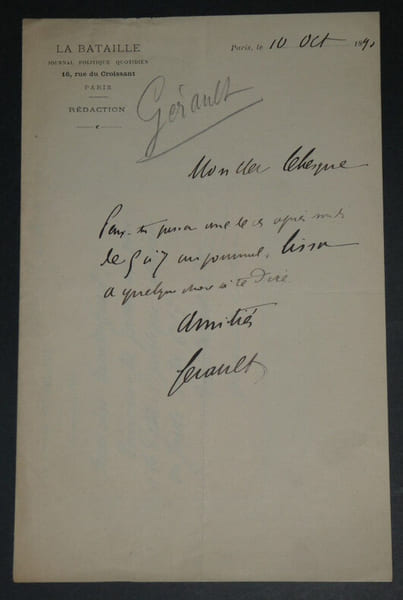 LA BATAILLE
JOURNAL POLITIQUE QUOTIDIEN
16, rue du Croissant
PARIS
RÉDACTION
Paris, le 10 Oct 189
Gérault
Mon cher
Peux-tu une de ces après midi
de 5 à 7 au journal, Lissa
a quelque chose à te dire
Amitiés
Gerault